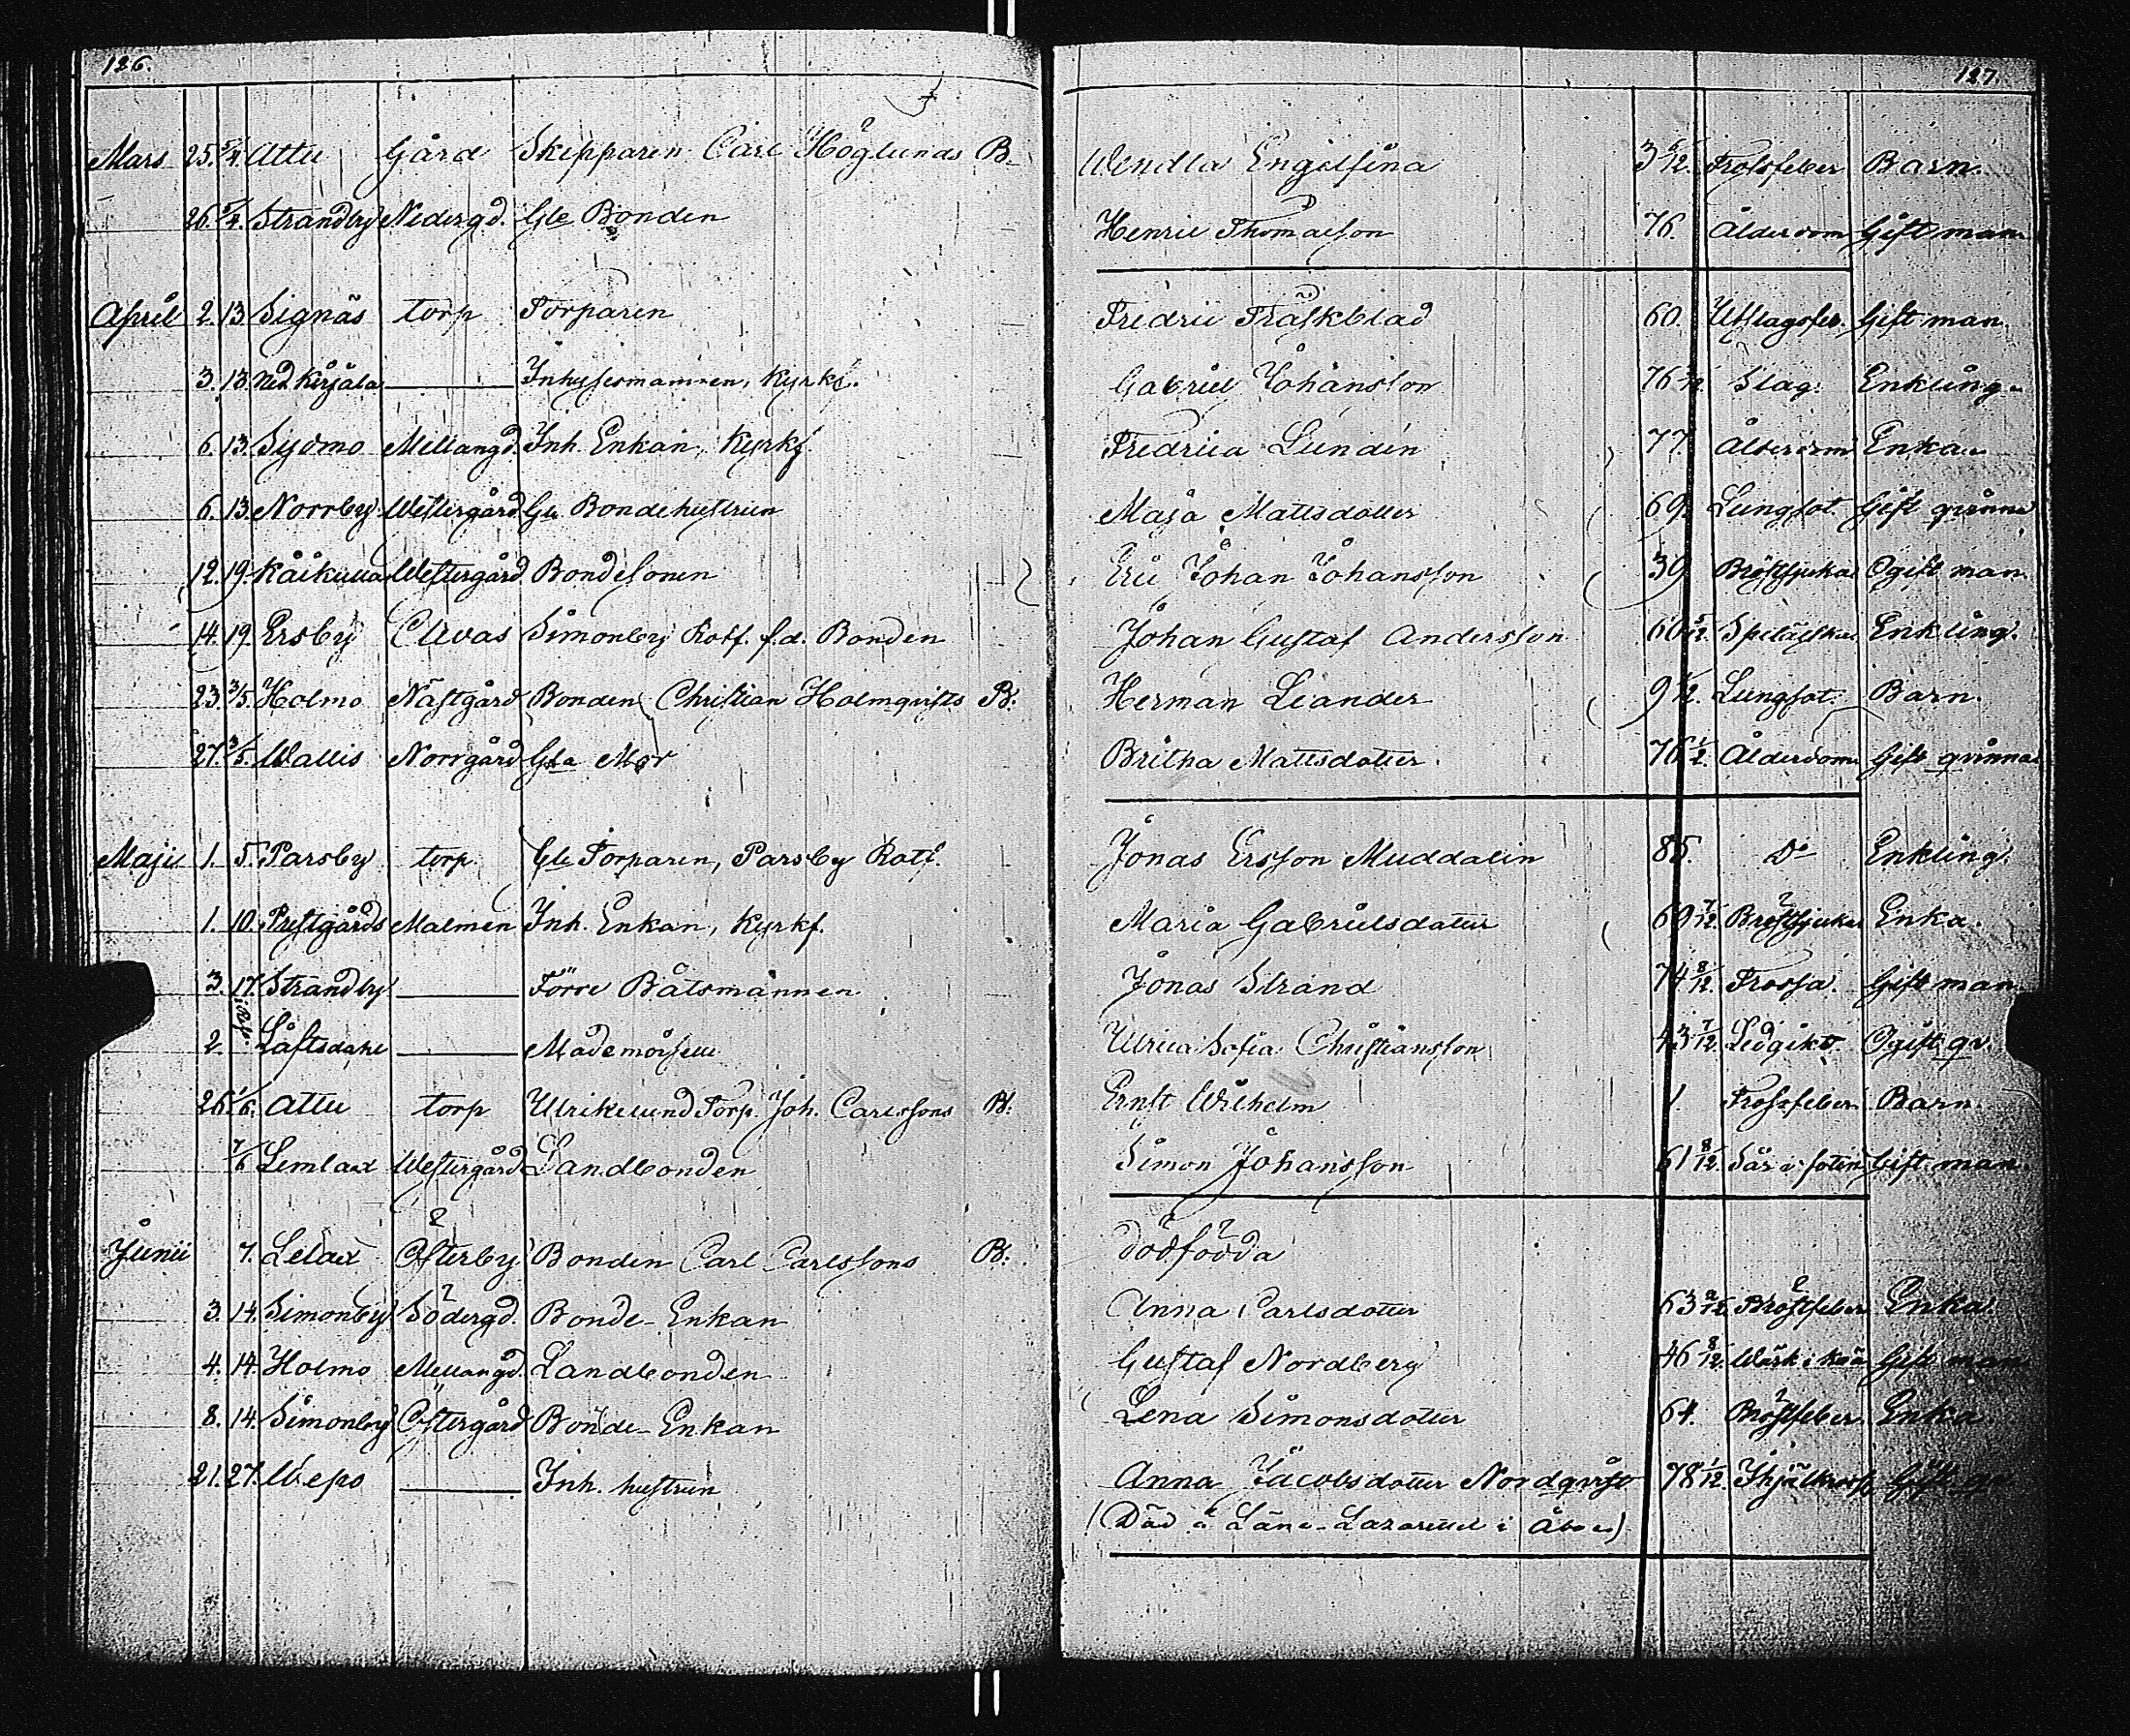 126.
127.
Mars 25. 5/4. Attu Gård Skepparen Carl Höglunds B. Wendla Engelsina 3 5/12. Frossfeber Barn.
26. 5/4. Strandby Nedergd. Gle Bonden Henric Thomasson 76. Ålderdom Gift man
April 2. 13 Signäs torp Torparen Fredric Träskblad 60. Utslagsfeb. Gift man.
3. 13. Ned Kirjala Inhysesmannen, Kyrkf. Gabriel Johansson 76 Slag. Enkling
6. 13. Sydmo Mellangd. Inh. Enkan, Kyrkf. Fredrica Lundén 77. Ålderdom Enka
6. 13. Norrby Westergård Gla Bondehustrun Maja Mattsdotter 69. Lungsot Gift qvinna
12. 19. Westergård Bondesonen Eric Johan Johansson 39 Bröstsjuka Ogift man.
14. 19. Ersby Clavas Simonby Rotf. f.d. Bonden Johan Gustaf Andersson Spetälska Enkling.
23. 3/5. Holmo Nästgård Bonden Christian Holmqvists B. Herman Leander 9 1/2. Lungsot. Barn.
27. 3/5. Wallis Norrgård Gla Mor Britha Mattsdotter. 76 1/2. Ålderdom Gift qvinna
Maji 1. 5. Parsby torp. Gle Torparen, Parsby Rotf. Jonas Ersson Muddalin 85. Do Enkling.
1. 10. Prestgårds Malmen Inh. Enkan, Kyrkf. Maria Gabrielsdotter 69 7/12. Bröstsjuka Enka.
3. 17. Strandby Förre Båtsmannen Jonas Strand 74 8/12. Frossa. Gift man.
2. Löftsdahl Mademoiselle Ulrica Sofia Christiansson 43 7/12. Ledgikt. Ogift qv.
26. 1/6. Attu torp Ulrikelund Torp. Joh. Carlssons B. Ernst Wilhelm 1. Frossfeber Barn.
7/6 Lemlax Westergård Landbonden Simon Johansson 61 8/12. Sår i foten Gift man.
Junii 7. Lelax Österby Bonden Carl Carlssons B. dödfödda
3. 14. Simonby Södergd. Bonde-Enkan Anna Carlsdotter 63 Bröstfeber Enka.
4. 14. Holmo Mellangd. Landbonden Gustaf Nordberg 46 8/12. Wärk i knä Gift man
8. 14. Simonby Östergård Bonde-Enkan Lena Simonsdotter 64. Bröstfeber. Enka
21. 27. Wepo Inh. hustrun Anna Jacobsdotter Nordqvist 78 1/12. Gift qv
(Död å Läns-Lazarettet i Åbo)